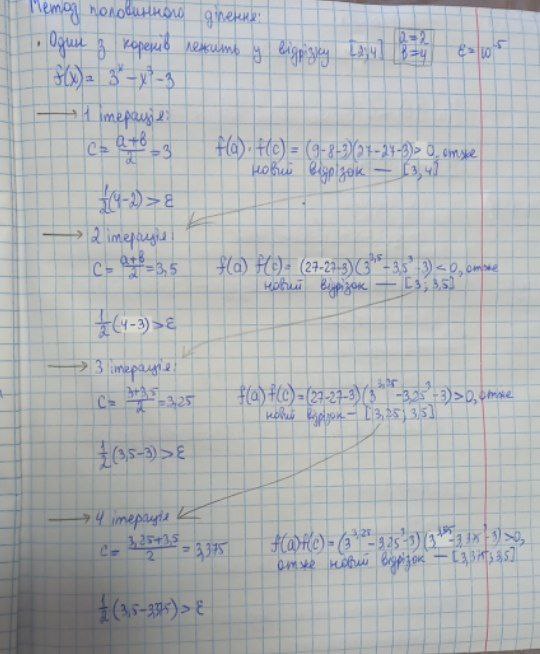 Метод половинного ділення:
• Один з коренів лежить у відрізку [2;4] a=2 b=4 ε=10^-5
f(x)= 3^x - x^3 - 3
→ 1 ітерація:
c = (a+b)/2 = 3 f(a)·f(c) = (9-8-3)(27-27-3)>0, отже
новий відрізок — [3,4]
1/2(4-2)>ε
→ 2 ітерація:
c = (a+b)/2 = 3,5 f(a) f(c)= (27-27-3)(3^3,5 - 3,5^3 - 3) < 0, отже
новий відрізок — [3; 3,5]
1/2(4-3)>ε
→ 3 ітерація:
c = (3+3,5)/2 = 3,25 f(a)f(c)=(27-27-3)(3^3,25 - 3,25^3 - 3)>0, отже
новий відрізок — [3,25; 3,5]
1/2(3,5-3)>ε
→ 4 ітерація
c = (3,25+3,5)/2 = 3,375 f(a)f(c)= (3^3,25 - 3,25^3 - 3)(3 - 3,375^3 - 3)>0,
отже новий відрізок — [3,375; 3,5]
1/2(3,5-3,375)>ε